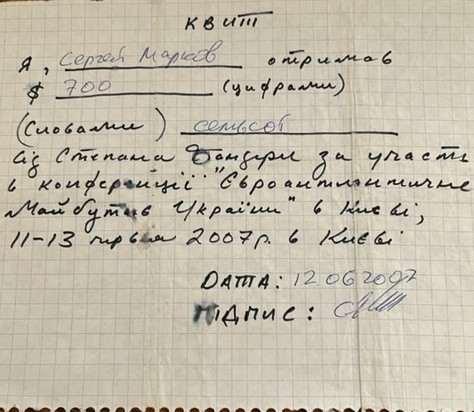 КВИТ
Я, Сергей Марков отримав
$ 700 (цифрами)
(словами) семьсот
від Степана Бандери за участь
в конференції "Євроатлантичне
Майбутнє України" в Києві,
11-13 червня 2007р. в Києві
DАТА: 12.06 2007
ПІДПИС: